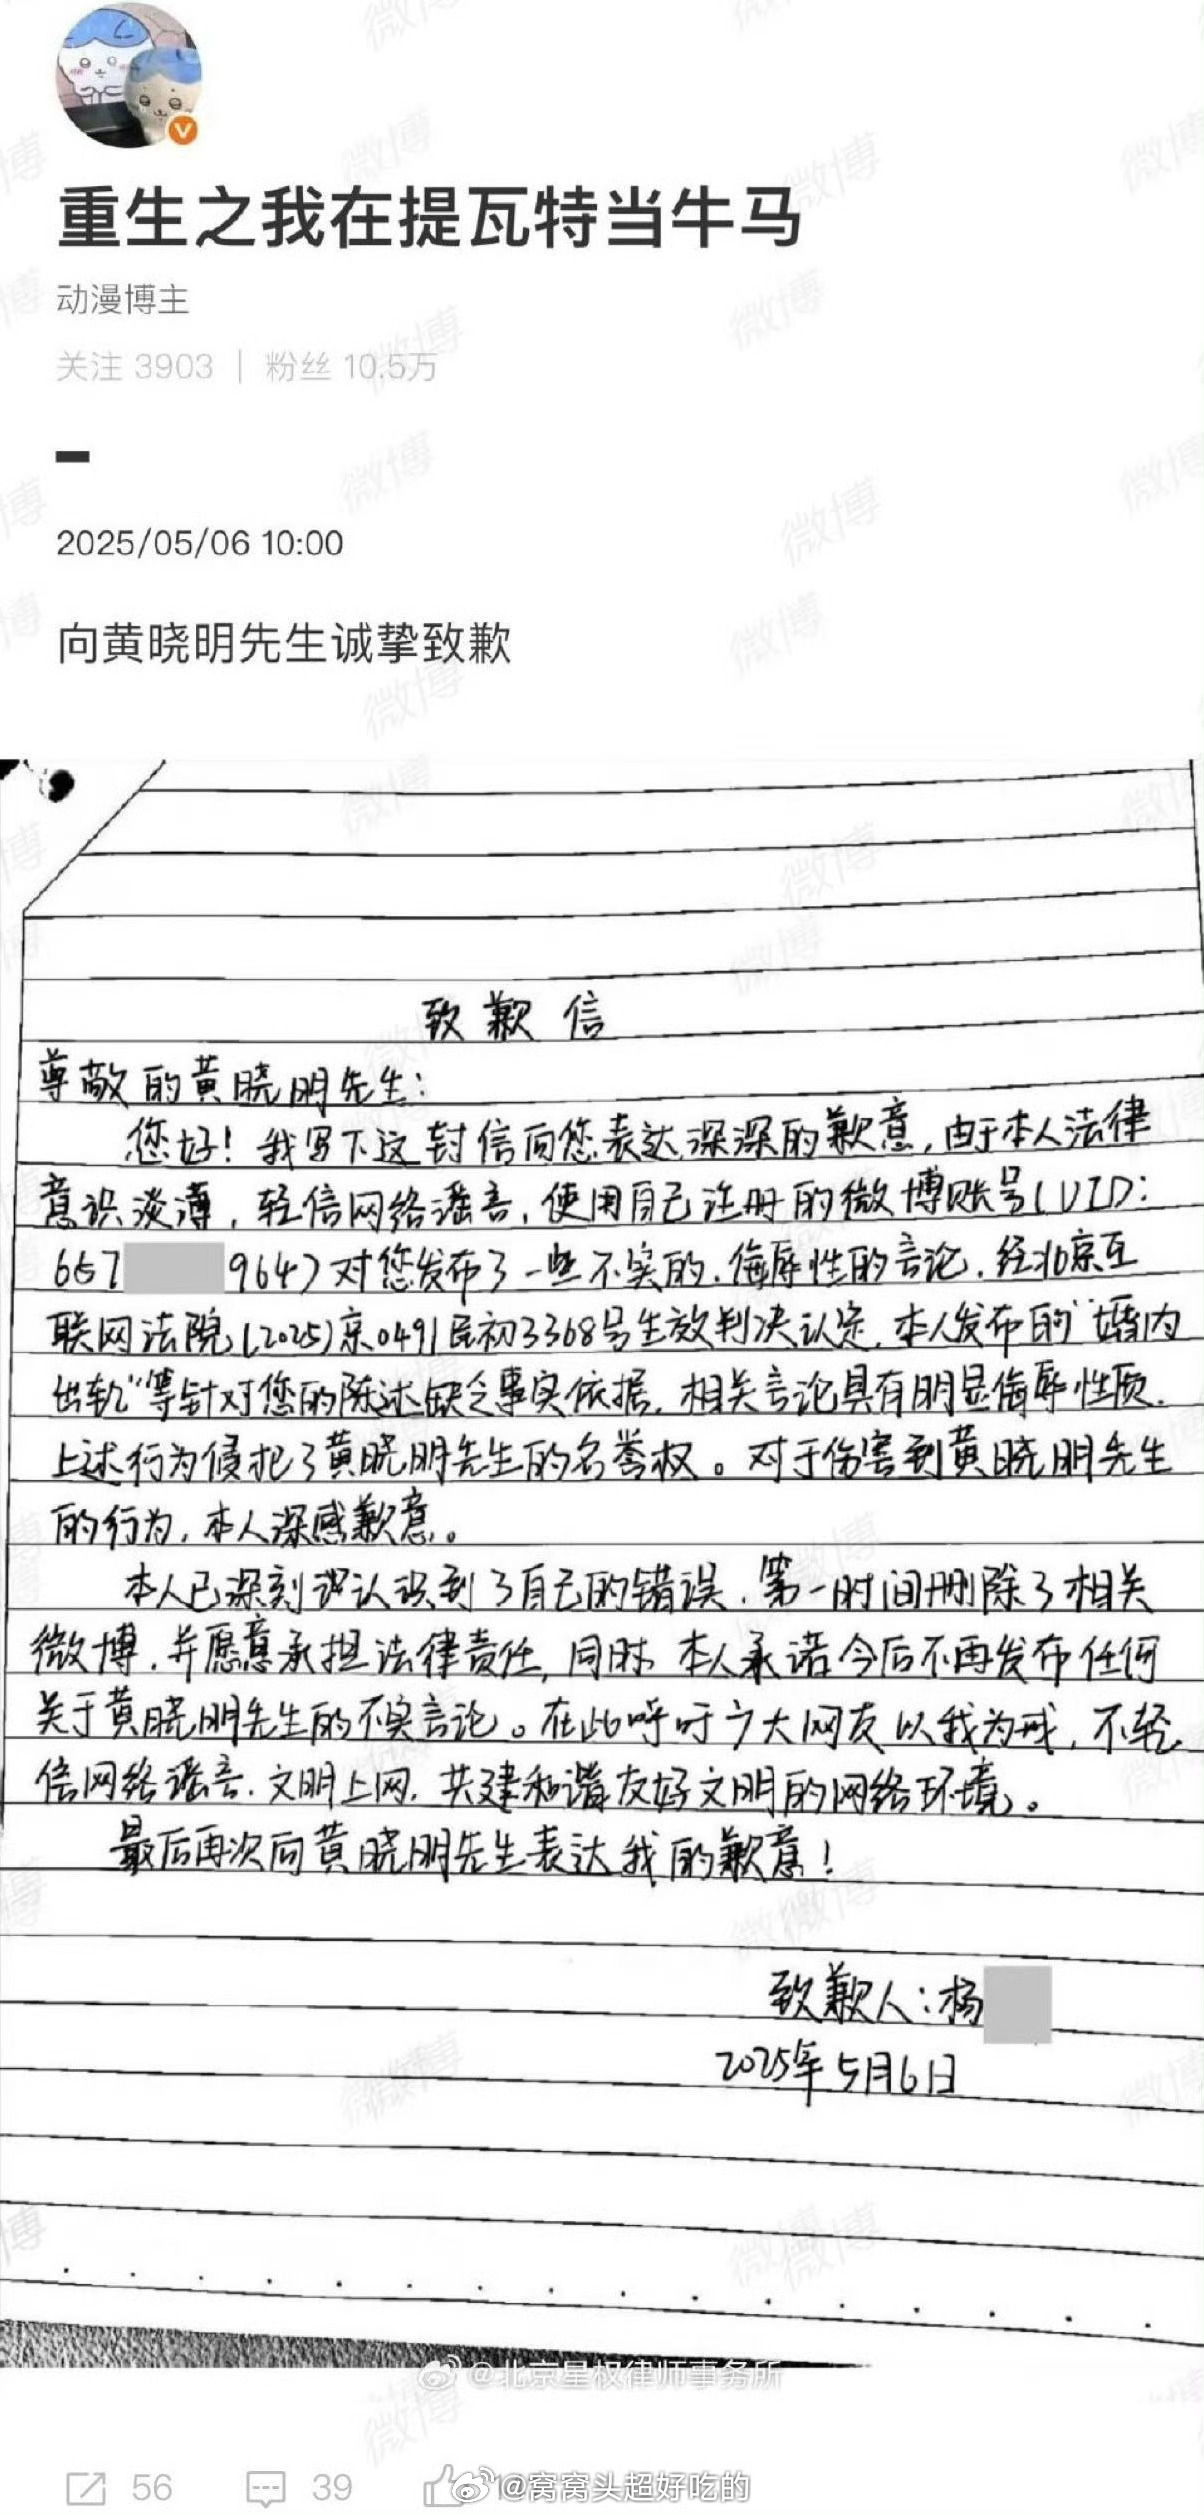 重生之我在提瓦特当牛马
动漫博主
关注 3903 | 粉丝 10.5万
2025/05/06 10:00
向黄晓明先生诚挚致歉
致歉信
尊敬的黄晓明先生：
您好！我写下这封信向您表达深深的歉意，由于本人法律
意识淡薄，轻信网络谣言，使用自己注册的微博账号(UID:
667 9647)对您发布了一些不实的、侮辱性的言论，经北京互
联网法院(2025)京0491民初3368号生效判决认定，本人发布的“婚内
出轨”等针对您的陈述缺乏事实依据，相关言论具有明显侮辱性质，
上述行为侵犯了黄晓明先生的名誉权。对于伤害到黄晓明先生
的行为，本人深感歉意。
本人已深刻认识到了自己的错误，第一时间删除了相关
微博，并愿意承担法律责任，同时，本人承诺今后不再发布任何
关于黄晓明先生的不实言论。在此呼吁广大网友以我为戒，不轻
信网络谣言，文明上网，共建和谐友好文明的网络环境。
最后再次向黄晓明先生表达我的歉意！
致歉人：杨
2025年5月6日
@北京星权律师事务所
56 39
@窝窝头超好吃的
微博